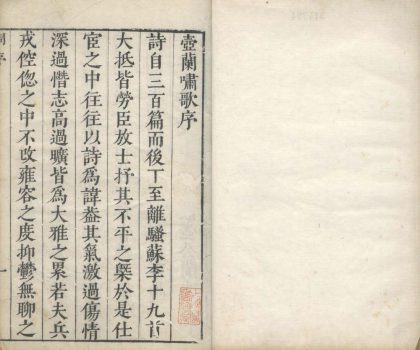 壺蘭嘯歌序
詩自三百篇而後丁至離騷蘇李十九首
大抵皆勞臣放士抒其不平之槩於是仕
宦之中往往以詩爲諱葢其氣激過傷情
深過憯志高過曠皆爲大雅之累若夫兵
戎倥偬之中不改雍容之度抑鬱無聊之
序
一